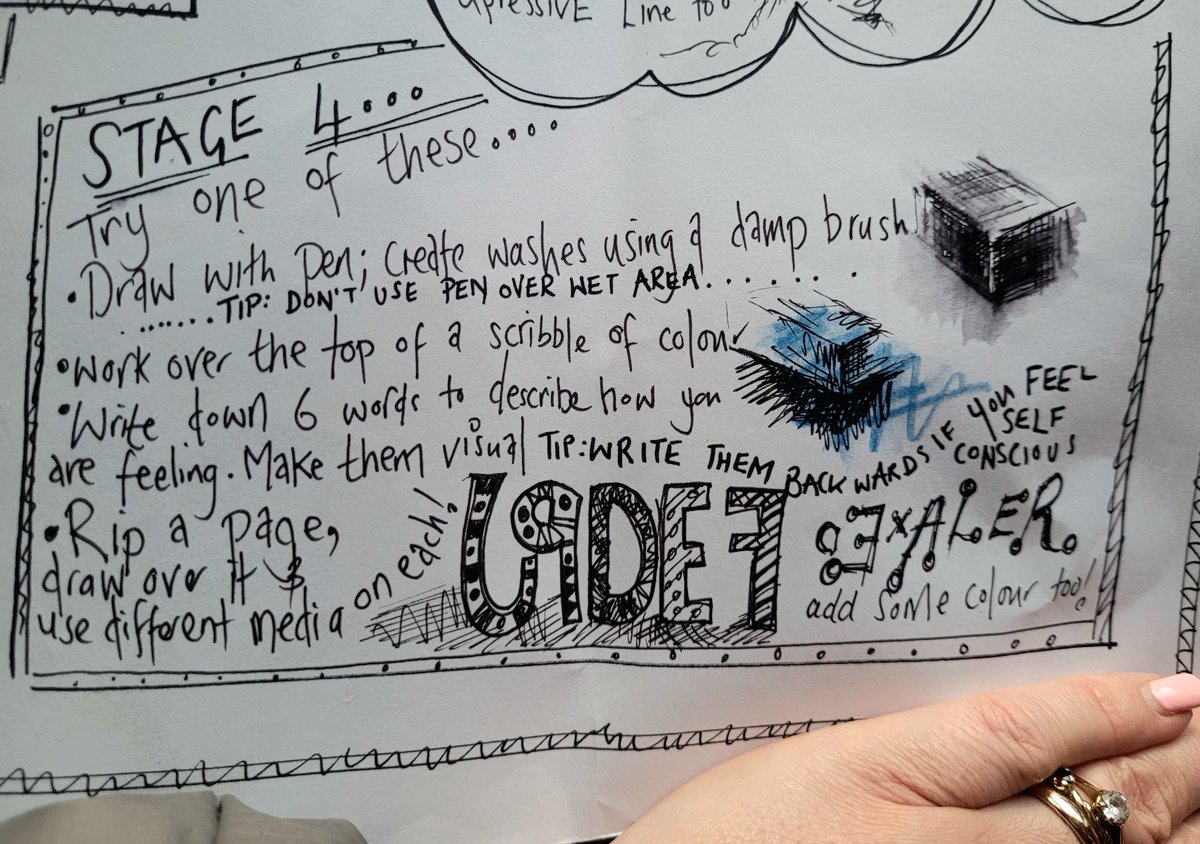 LINE TOO
STAGE 4...
Try one of these....
• Draw with pen; create washes using a damp brush
.......TIP: DON'T USE PEN OVER WET AREA.......
• Work over the top of a scribble of colour
• Write down 6 words to describe how you
are feeling. Make them visual TIP: WRITE THEM BACKWARDS IF YOU FEEL
SELF
CONSCIOUS
• Rip a page,
draw over it &
use different media on each!
add some colour too!